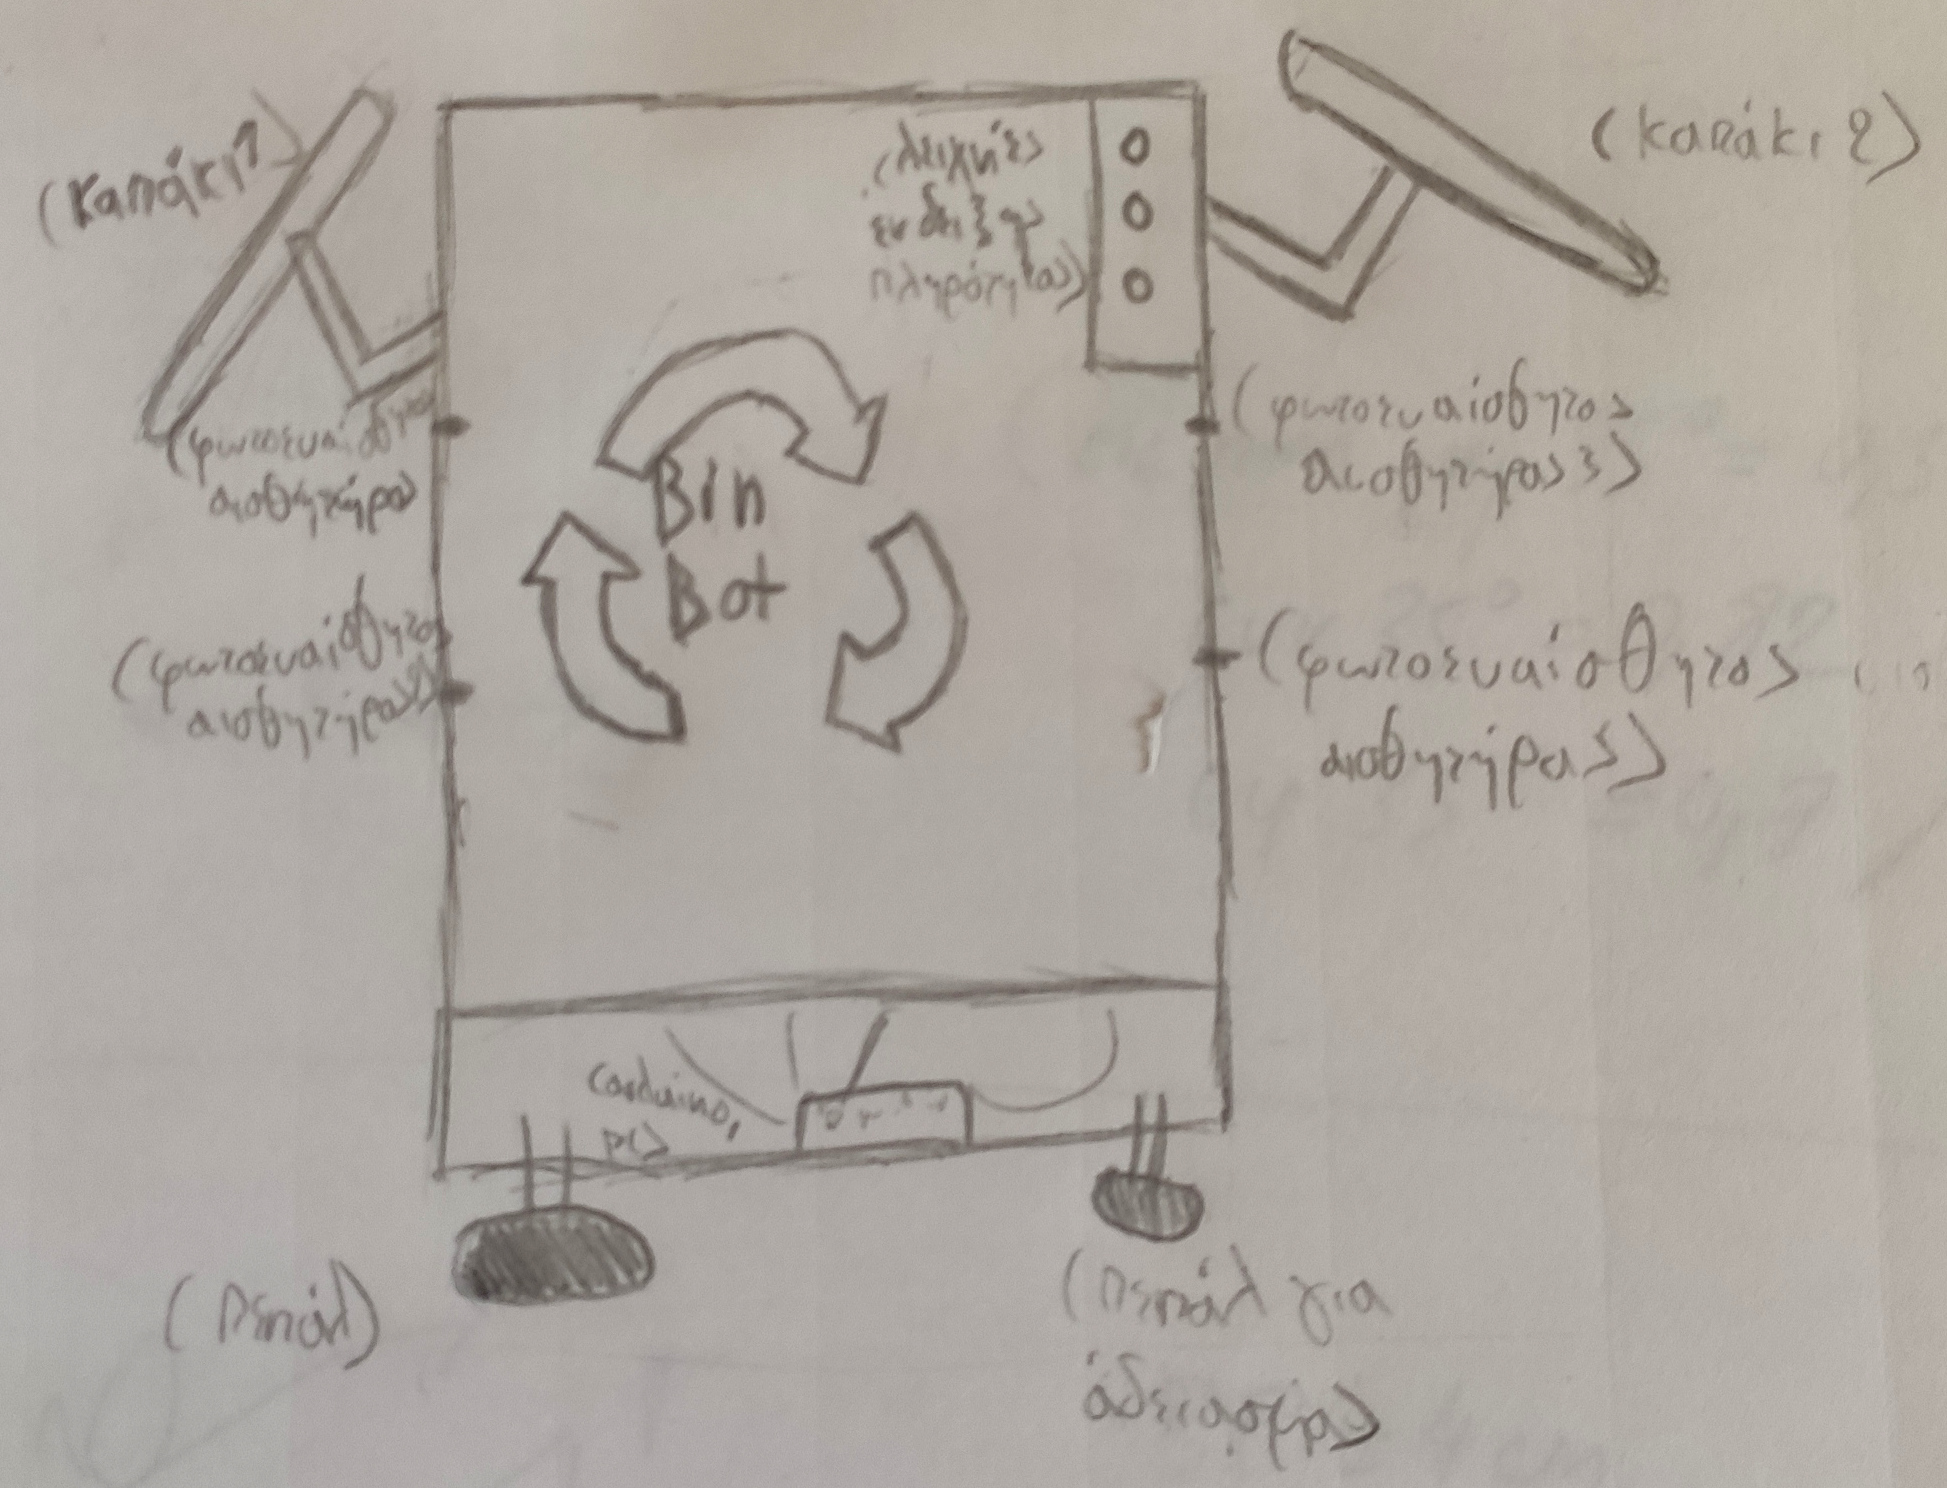 (καπάκι 1)
(καπάκι 2)
(λυχνίες
ενδειξης
πληρότητας)
(φωτοευαίσθητος
αισθητήρας
(φωτοευαίσθητος
αισθητήρας 3)
Bin
Bot
(φωτοευαίσθητος
αισθητήρας
(φωτοευαίσθητος
αισθητήρας)
(arduino,
(πεπάλ)
(πεπάλ για
άδειασμα)